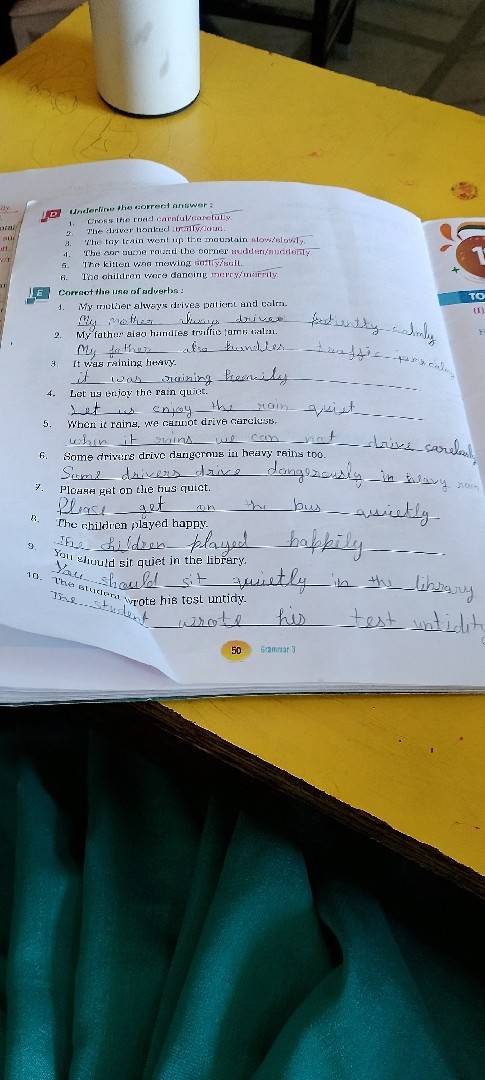 D Underline the correct answer :
1. Cross the road careful/carefully.
2. The driver honked loudly/loud.
3. The toy train went up the mountain slow/slowly.
4. The car came round the corner sudden/suddenly.
5. The kitten was mewing softly/soft.
6. The children were dancing mercy/merrily.
E Correct the use of adverbs :
1. My mother always drives patient and calm.
My mother always drives patiently calmly
2. My father also handles traffic jams calm.
My father also handles traffic jams calm
3 It was raining heavy.
it was raining heavily
4. Let us enjoy the rain quiet.
Let us enjoy the rain quiet
5. When it rains, we cannot drive careless.
when it rains we can not drive
6. Some drivers drive dangerous in heavy rains too.
Some drivers drive dangerously in heavy rain
7. Please get on the bus quiet.
Please get on the bus quietly
8. The children played happy.
The children played happily
9. You should sit quiet in the library.
You should sit quietly in the library
10. The student wrote his test untidy.
The student wrote his test
50 Grammar 3
1
TO